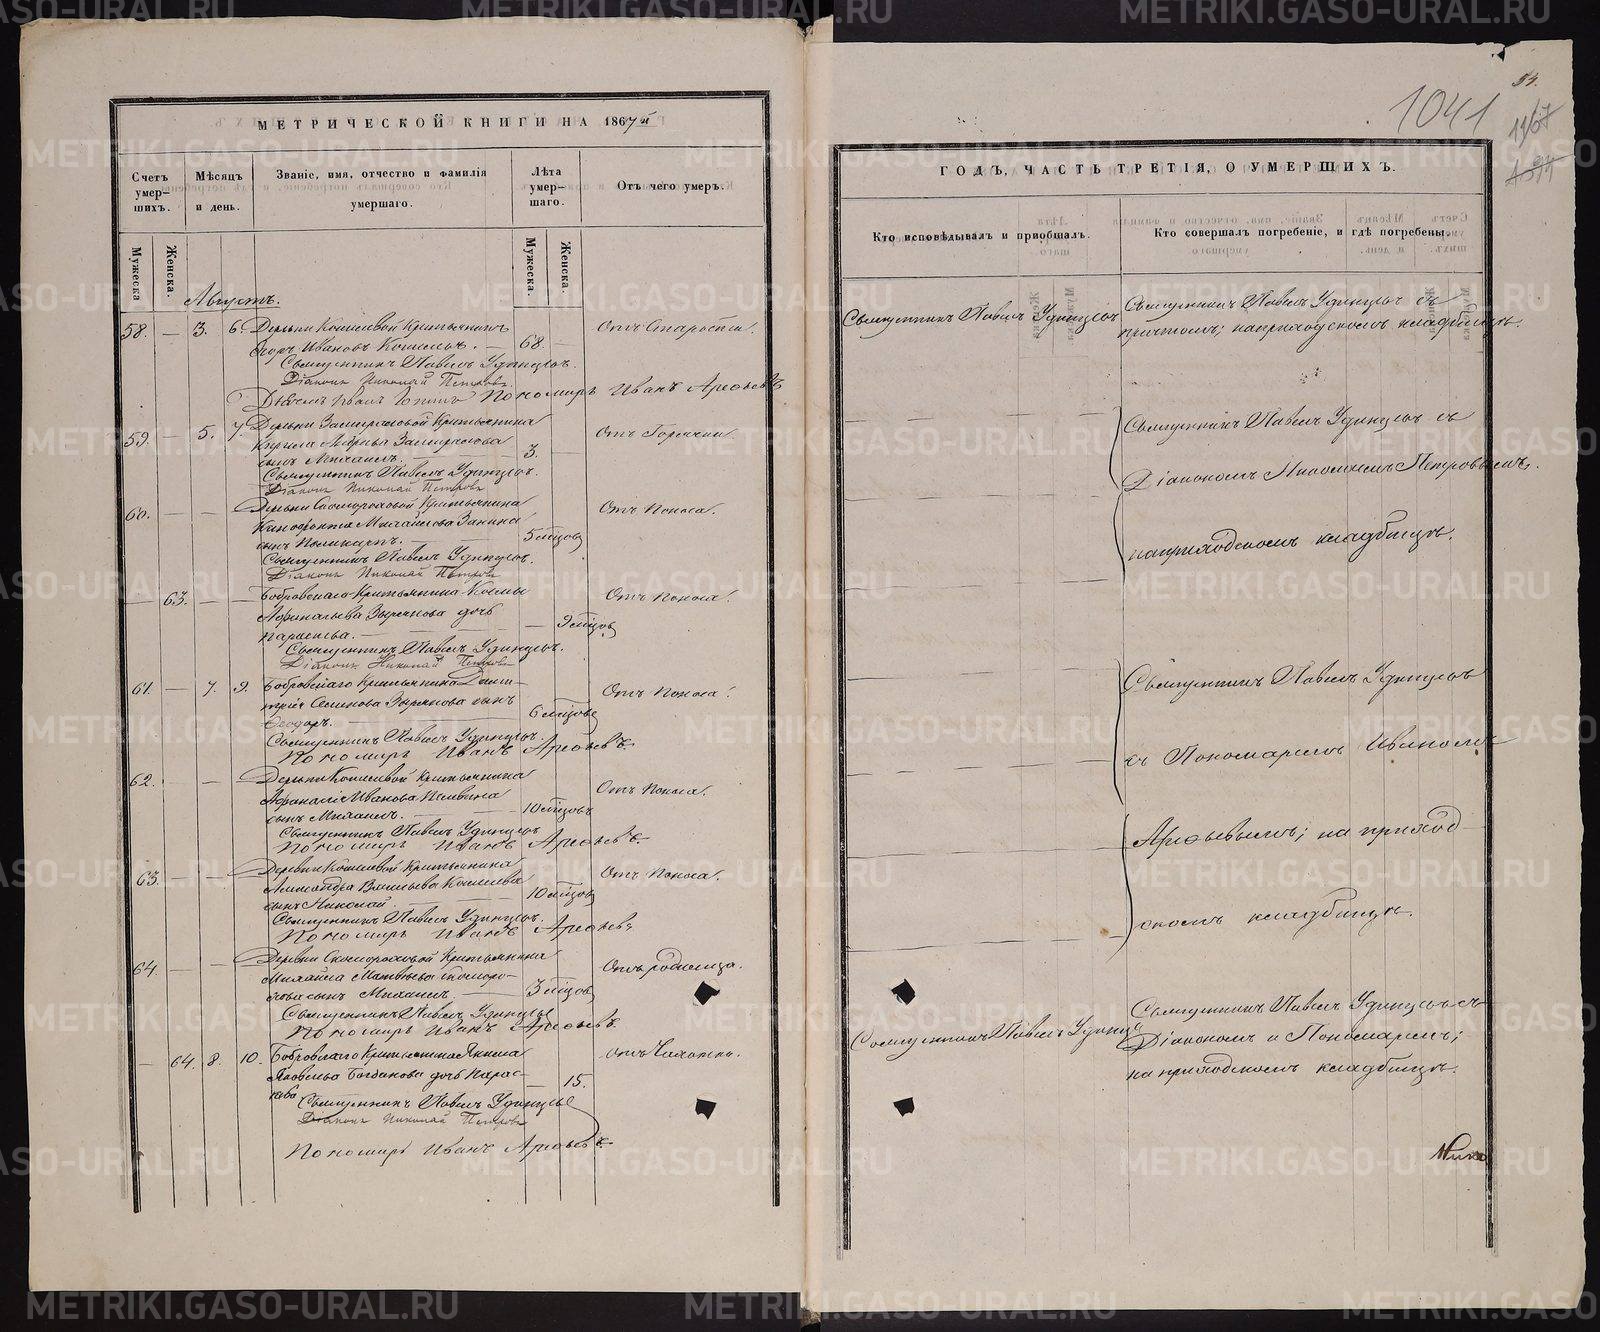 МЕТРИЧЕСКОЙ КНИГИ НА 1867й
Счетъ умер-шихъ.
Мѣсяцъ и день.
Званіе, имя, отчество и фамилія умершаго.
Лѣта умер-шаго.
Отъ чего умеръ.
Мужеска
Женска.
Мужеска.
Женска.
Августъ.
58. — 3. 6. Деревни Кошелевой Крестьянинъ 68. — Отъ Старости.
Егоръ Ивановъ Кошелевъ.
Священникъ Павелъ Удинцовъ.
Діаконъ Николай Петровъ
Пономарь Иванъ Арефьевъ
59. — 5. 7. Деревни Крестьянина 3. — Отъ Горячки.
Кирила
сынъ Михаилъ.
Священникъ Павелъ Удинцовъ.
Діаконъ Николай Петровъ
60. — — — Деревни Скомороховой Крестьянина Отъ Поноса.
Михайлова Занина 5 мѣсцовъ
сынъ Поликарпъ.
Священникъ Павелъ Удинцовъ.
Діаконъ Николай Петровъ
— 63. — — Бобровскаго Крестьянина Космы Отъ Поноса.
Афанасьева Зырянова дочь — 9 мѣсцов
Параскева.
Священникъ Павелъ Удинцовъ.
Діаконъ Николай Петровъ
61. — 7. 9. Бобровскаго Крестьянина Дими- Отъ Поноса.
трія Семенова Зырянова сынъ 6 мѣсцовъ
Ѳеодоръ.
Священникъ Павелъ Удинцовъ.
Пономарь Иванъ Арефьевъ.
62. — — — Деревни Кошелевой Крестьянина Отъ Поноса.
Афанасія Иванова
сынъ Михаилъ. 10 мѣсцовъ
Священникъ Павелъ Удинцовъ
Пономарь Иванъ Арефьевъ.
63. — — — Деревни Кошелевой Крестьянина Отъ Поноса.
Александра Васильева Кошелева 10 мѣсцов
сынъ Николай.
Священникъ Павелъ Удинцовъ.
Пономарь Иванъ Арефьевъ
64. — — — Деревни Скомороховой Крестьянина Отъ родимца.
Михайла Матвѣева Скоморо-
хова сынъ Михаилъ 3 мѣсцов
Священникъ Павелъ Удинцовъ
Пономарь Иванъ Арефьевъ.
— 64. 8. 10. Бобровскаго Крестьянина Якима Отъ Чахотки.
Яковлева Богданова дочь Парас- — 15.
кева
Священникъ Павелъ Удинцовъ
Діаконъ Николай Петровъ
Пономарь Иванъ Арефьевъ.
54.
1041
ГОДЪ, ЧАСТЬ ТРЕТІЯ, О УМЕРШИХЪ.
Кто исповѣдывалъ и пріобщалъ.
Кто совершалъ погребеніе, и гдѣ погребены.
Священникъ Павелъ Удинцовъ
Священникъ Павелъ Удинцовъ съ
причтомъ; на приходскомъ кладбищѣ.
Священникъ Павелъ Удинцовъ съ
Діакономъ Николаемъ Петровымъ.
на приходскомъ кладбищѣ.
Священникъ Павелъ Удинцовъ
съ Пономаремъ Иваномъ
Арефьевымъ; на приход-
скомъ кладбищѣ.
Священникъ Павелъ Удинцов
Священникъ Павелъ Удинцовъ съ
Діакономъ и Пономаремъ;
на приходскомъ кладбищѣ.
METRIKI.GASO-URAL.RU